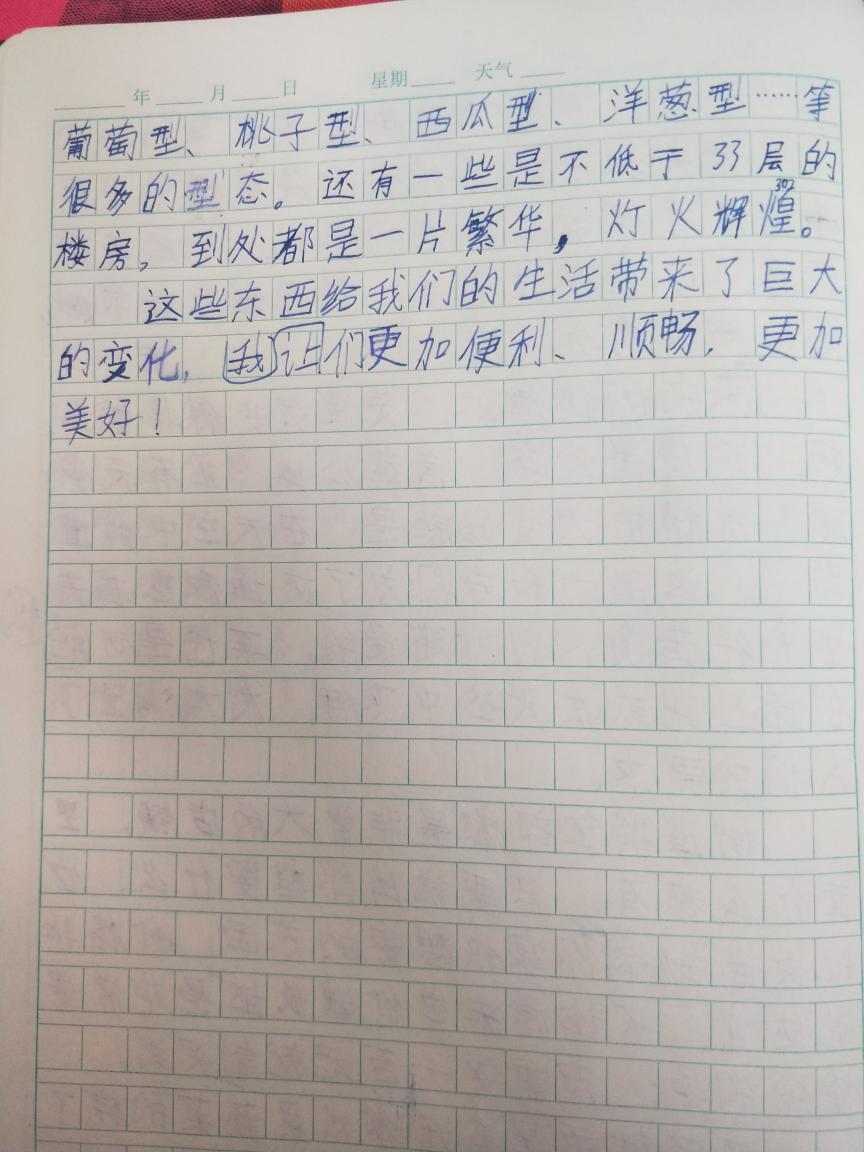 年 月 日 星期 天气
葡萄型、桃子型、西瓜型、洋葱型……等
很多的型态。还有一些是不低于33层的
楼房，到处都是一片繁华，灯火辉煌。
这些东西给我们的生活带来了巨大
的变化，我让们更加便利、顺畅，更加
美好！